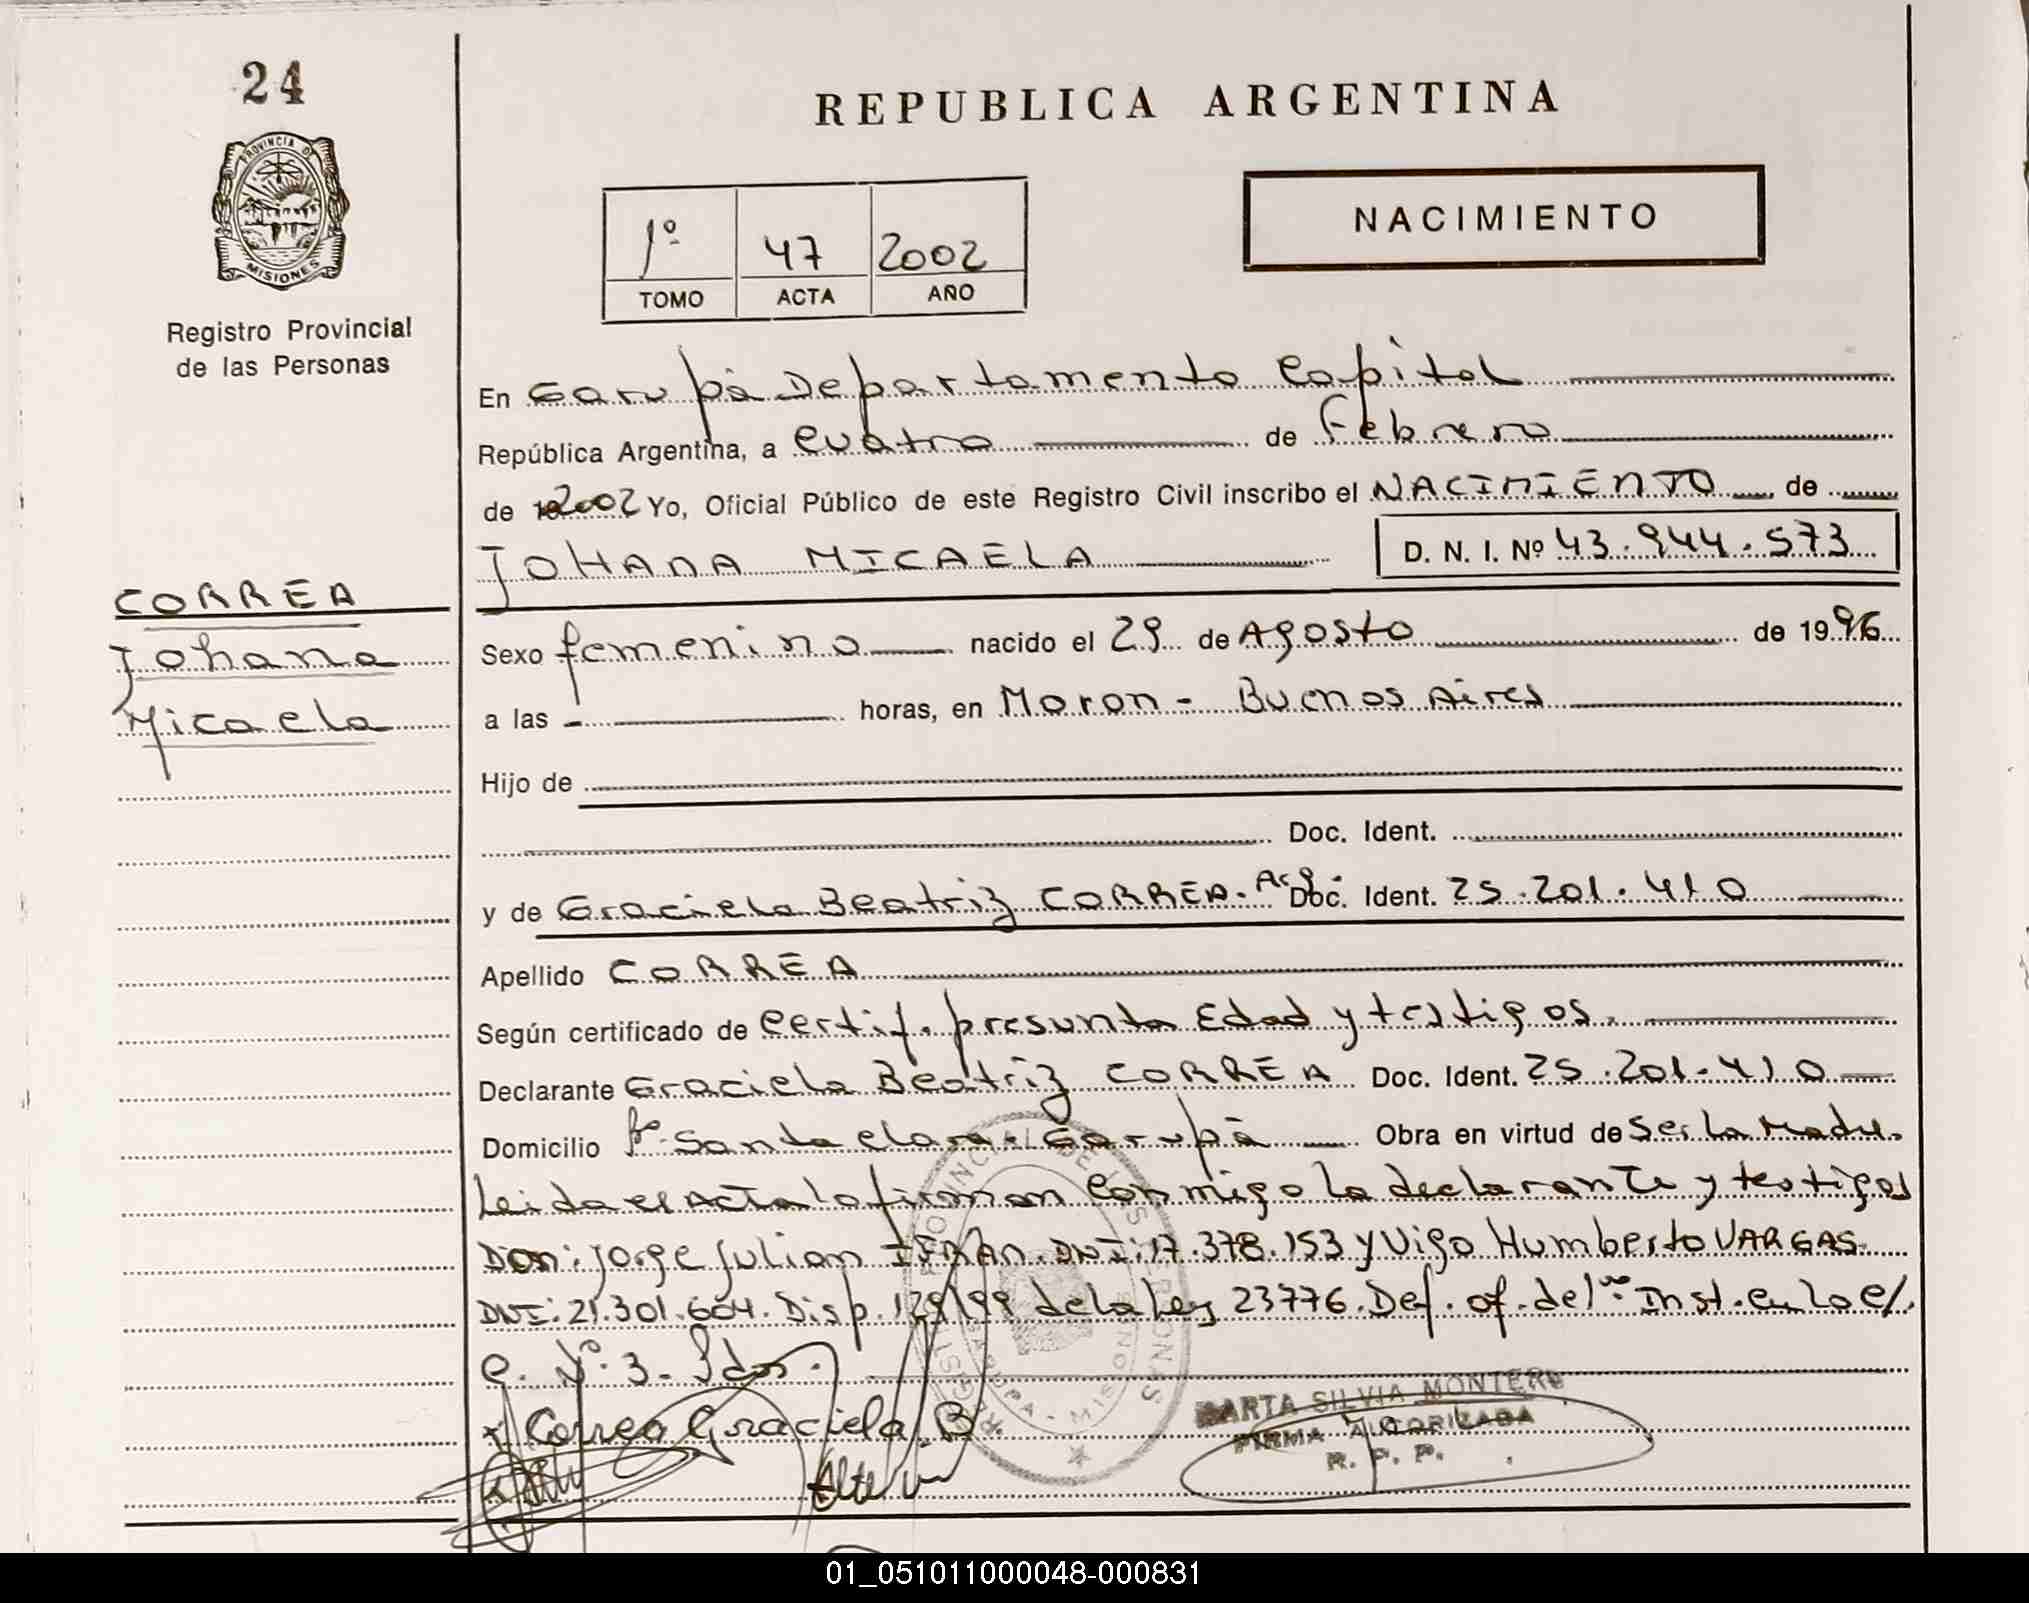 24
REPUBLICA ARGENTINA
PROVINCIA DE
MISIONES
Registro Provincial
de las Personas
1º 47 2002
TOMO ACTA AÑO
NACIMIENTO
En Garupá Departamento Capital
República Argentina, a cuatro de Febrero
de 2002 Yo, Oficial Público de este Registro Civil inscribo el NACIMIENTO de
JOHANA MICAELA D. N. I. Nº 43.944.573
CORREA
Johana
Micaela
Sexo femenino nacido el 29 de Agosto de 1996
a las - horas, en Moron - Buenos Aires
Hijo de
Doc. Ident.
y de Graciela Beatriz CORREA. Arg. Doc. Ident. 25.201.410
Apellido CORREA
Según certificado de Certif. presunta Edad y testigos.
Declarante Graciela Beatriz CORREA Doc. Ident. 25.201.410
Domicilio Bº Santa Clara - Garupá Obra en virtud de Ser la Madre.
Leida el Acta la firman conmigo la declarante y testigos
Don: Jorge Julian IFRAN. DNI: 17.378.153 y Vigo Humberto VARGAS
DNI: 21.301.604. Disp. 129/99 de la Ley 23776. Def. of. de 1ra Inst. en lo C/.
C. Nº. 3. Pdas.
x Correa Graciela. B.
REGISTRO PROVINCIAL DE LAS PERSONAS
GARUPA - MISIONES
MARTA SILVIA MONTERO
FIRMA AUTORIZADA
R. P. P.
01_051011000048-000831